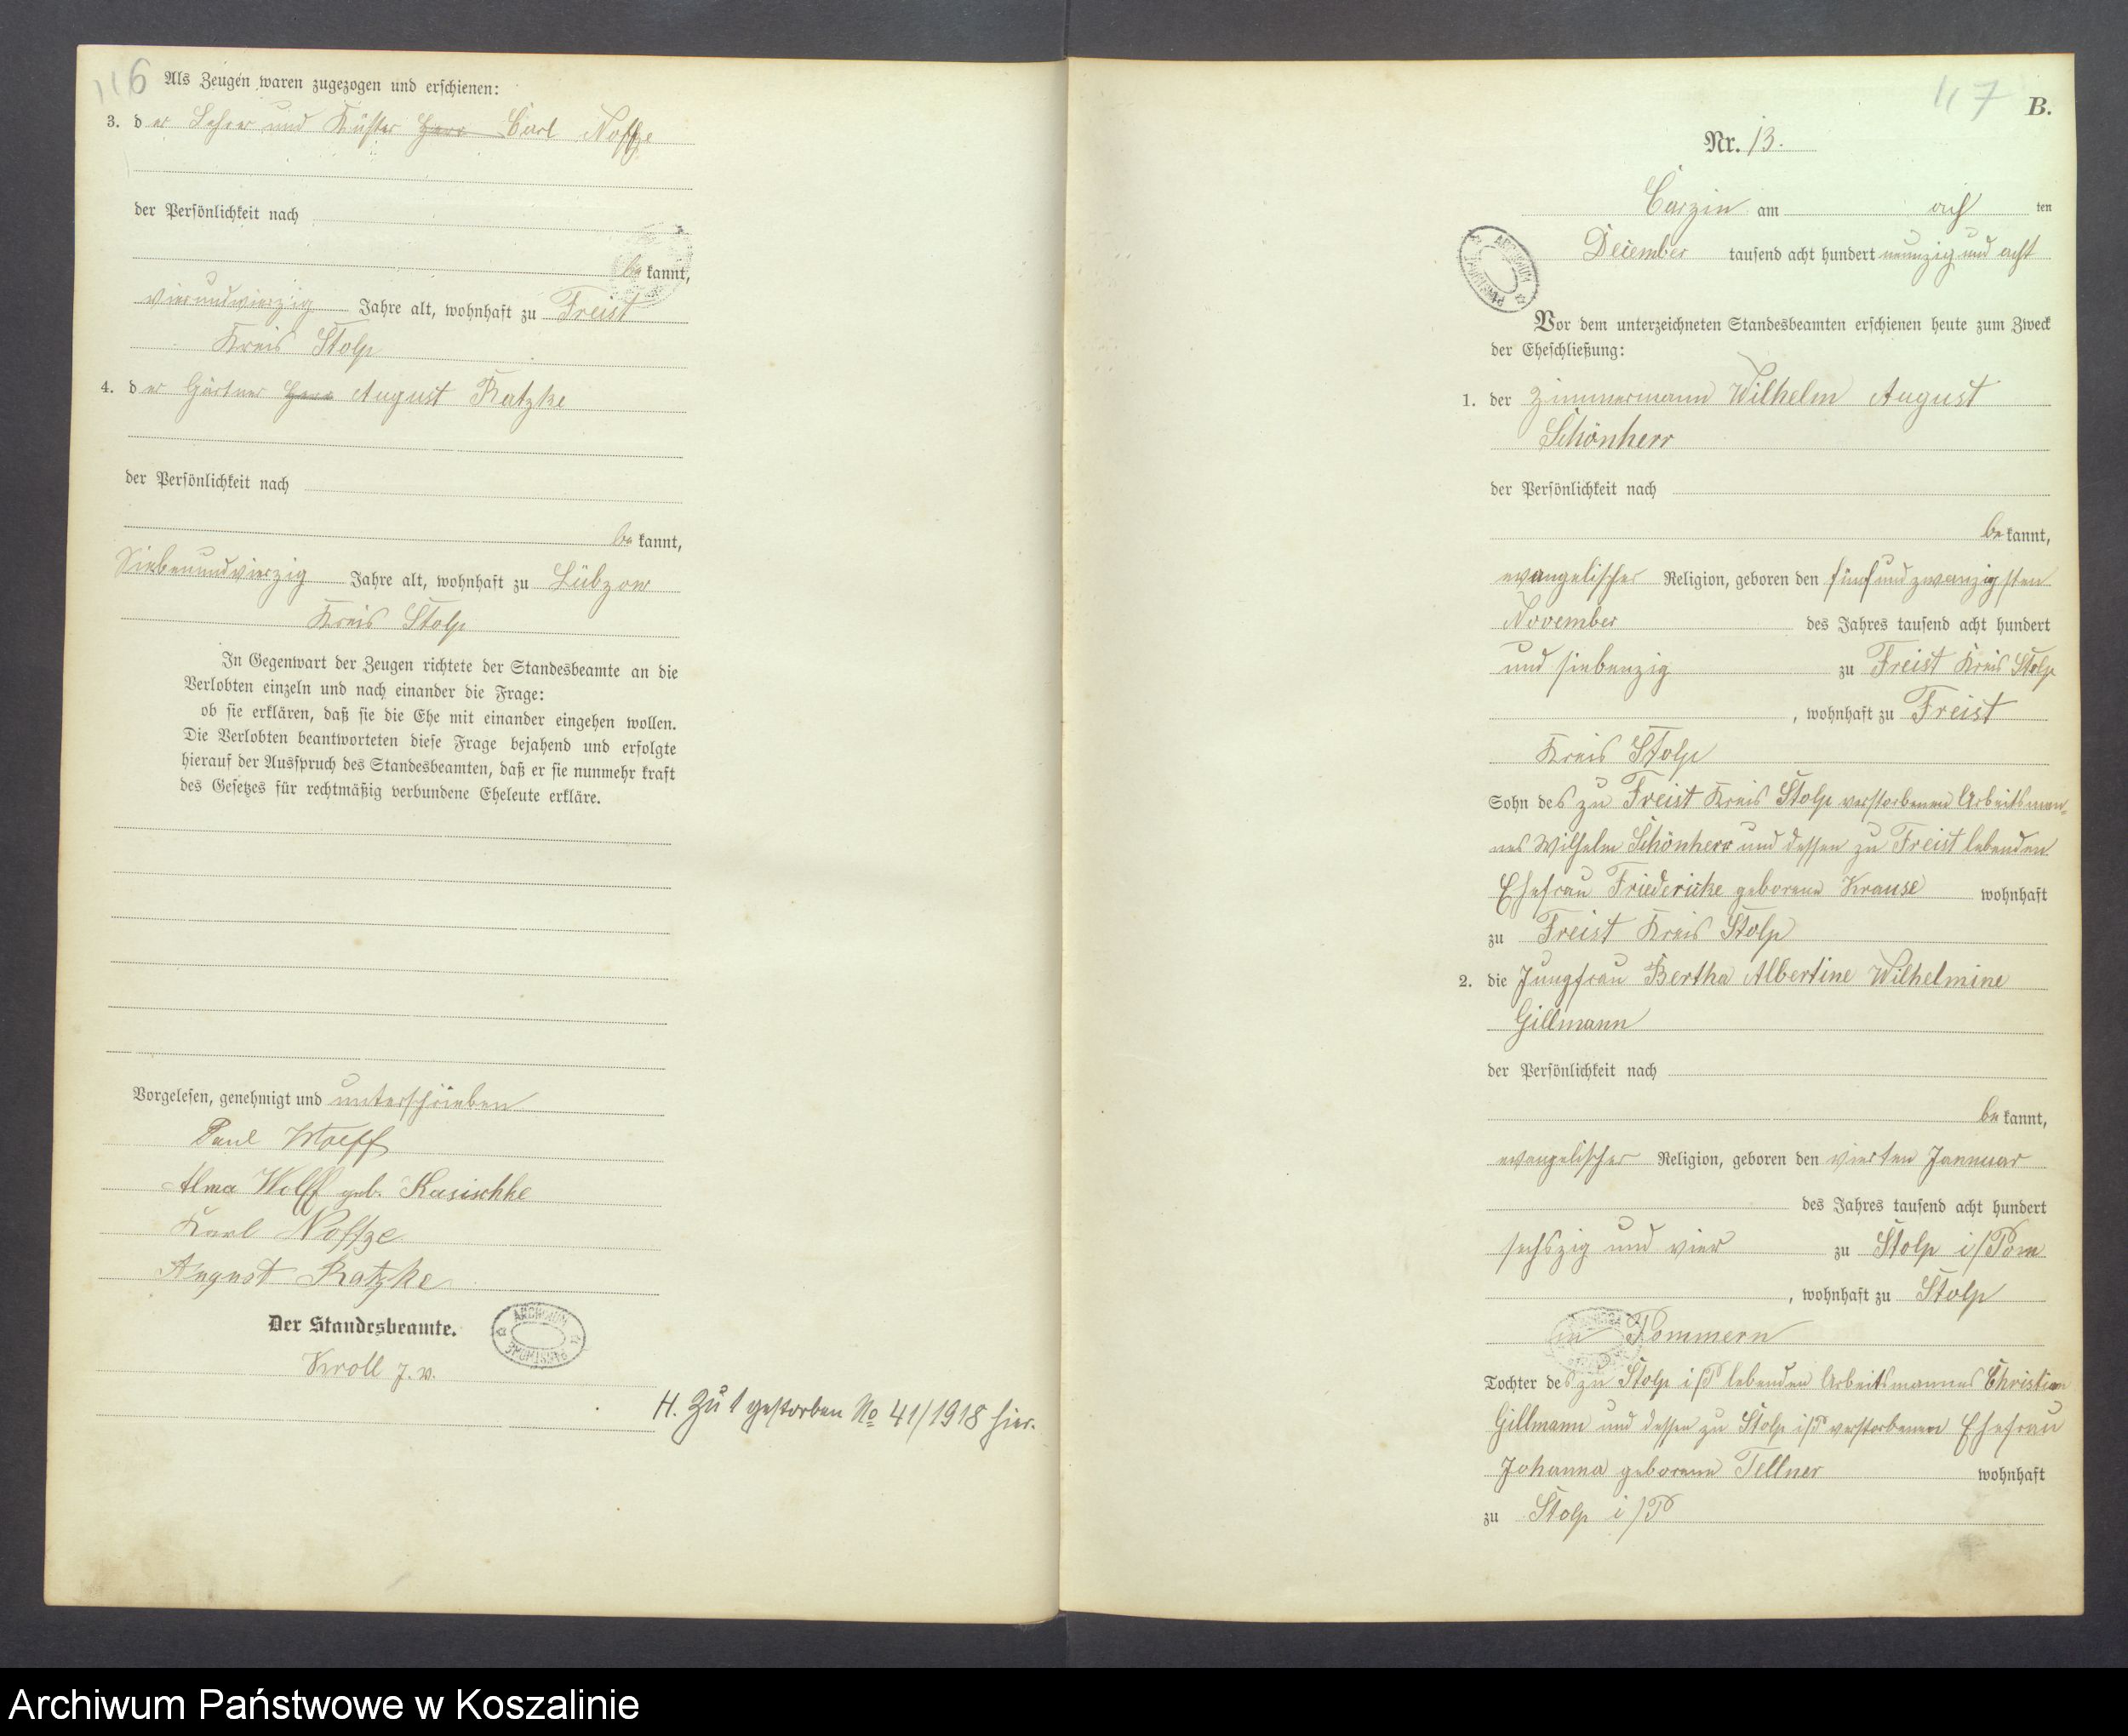 116
Als Zeugen waren zugezogen und erschienen:
3. der Lehrer und Küster Herr Carl Noffze
der Persönlichkeit nach
bekannt,
vierundvierzig Jahre alt, wohnhaft zu Freist
Kreis Stolp
4. der Gärtner Herr August Ratzke
der Persönlichkeit nach
bekannt,
Siebenundvierzig Jahre alt, wohnhaft zu Lübzow
Kreis Stolp
In Gegenwart der Zeugen richtete der Standesbeamte an die
Verlobten einzeln und nach einander die Frage:
ob sie erklären, daß sie die Ehe mit einander eingehen wollen.
Die Verlobten beantworteten diese Frage bejahend und erfolgte
hierauf der Ausspruch des Standesbeamten, daß er sie nunmehr kraft
des Gesetzes für rechtmäßig verbundene Eheleute erkläre.
Vorgelesen, genehmigt und unterschrieben
Paul Wolff
Alma Wolff geb. Kasischke
Karl Noffze
August Ratzke
Der Standesbeamte.
ARCHIVUM
Kroll
H. Zu 1 gestorben No 41/1918 hier.
117
B.
Nr. 13.
Carzin am acht ten
December tausend acht hundert neunzig und acht
ARCHIVUM
Vor dem unterzeichneten Standesbeamten erschienen heute zum Zweck
der Eheschließung:
1. der Zimmermann Wilhelm August
Schönherr
der Persönlichkeit nach
bekannt,
evangelischer Religion, geboren den fünfundzwanzigsten
November des Jahres tausend acht hundert
und siebenzig zu Freist Kreis Stolp
, wohnhaft zu Freist
Kreis Stolp
Sohn des zu Freist Kreis Stolp verstorbenen Arbeitsman-
nes Wilhelm Schönherr und dessen zu Freist lebenden
Ehefrau Friedericke geborene Krause wohnhaft
zu Freist Kreis Stolp
2. die Jungfrau Bertha Albertine Wilhelmine
Gillmann
der Persönlichkeit nach
bekannt,
evangelischer Religion, geboren den vierten Jannuar
des Jahres tausend acht hundert
sechszig und vier zu Stolp i/Pom
, wohnhaft zu Stolp
in Pommern
Tochter des zu Stolp i/P lebenden Arbeitsmannes Christian
Gillmann und dessen zu Stolp i/P verstorbenen Ehefrau
Johanna geborene Tellner wohnhaft
zu Stolp i/P
Archiwum Państwowe w Koszalinie